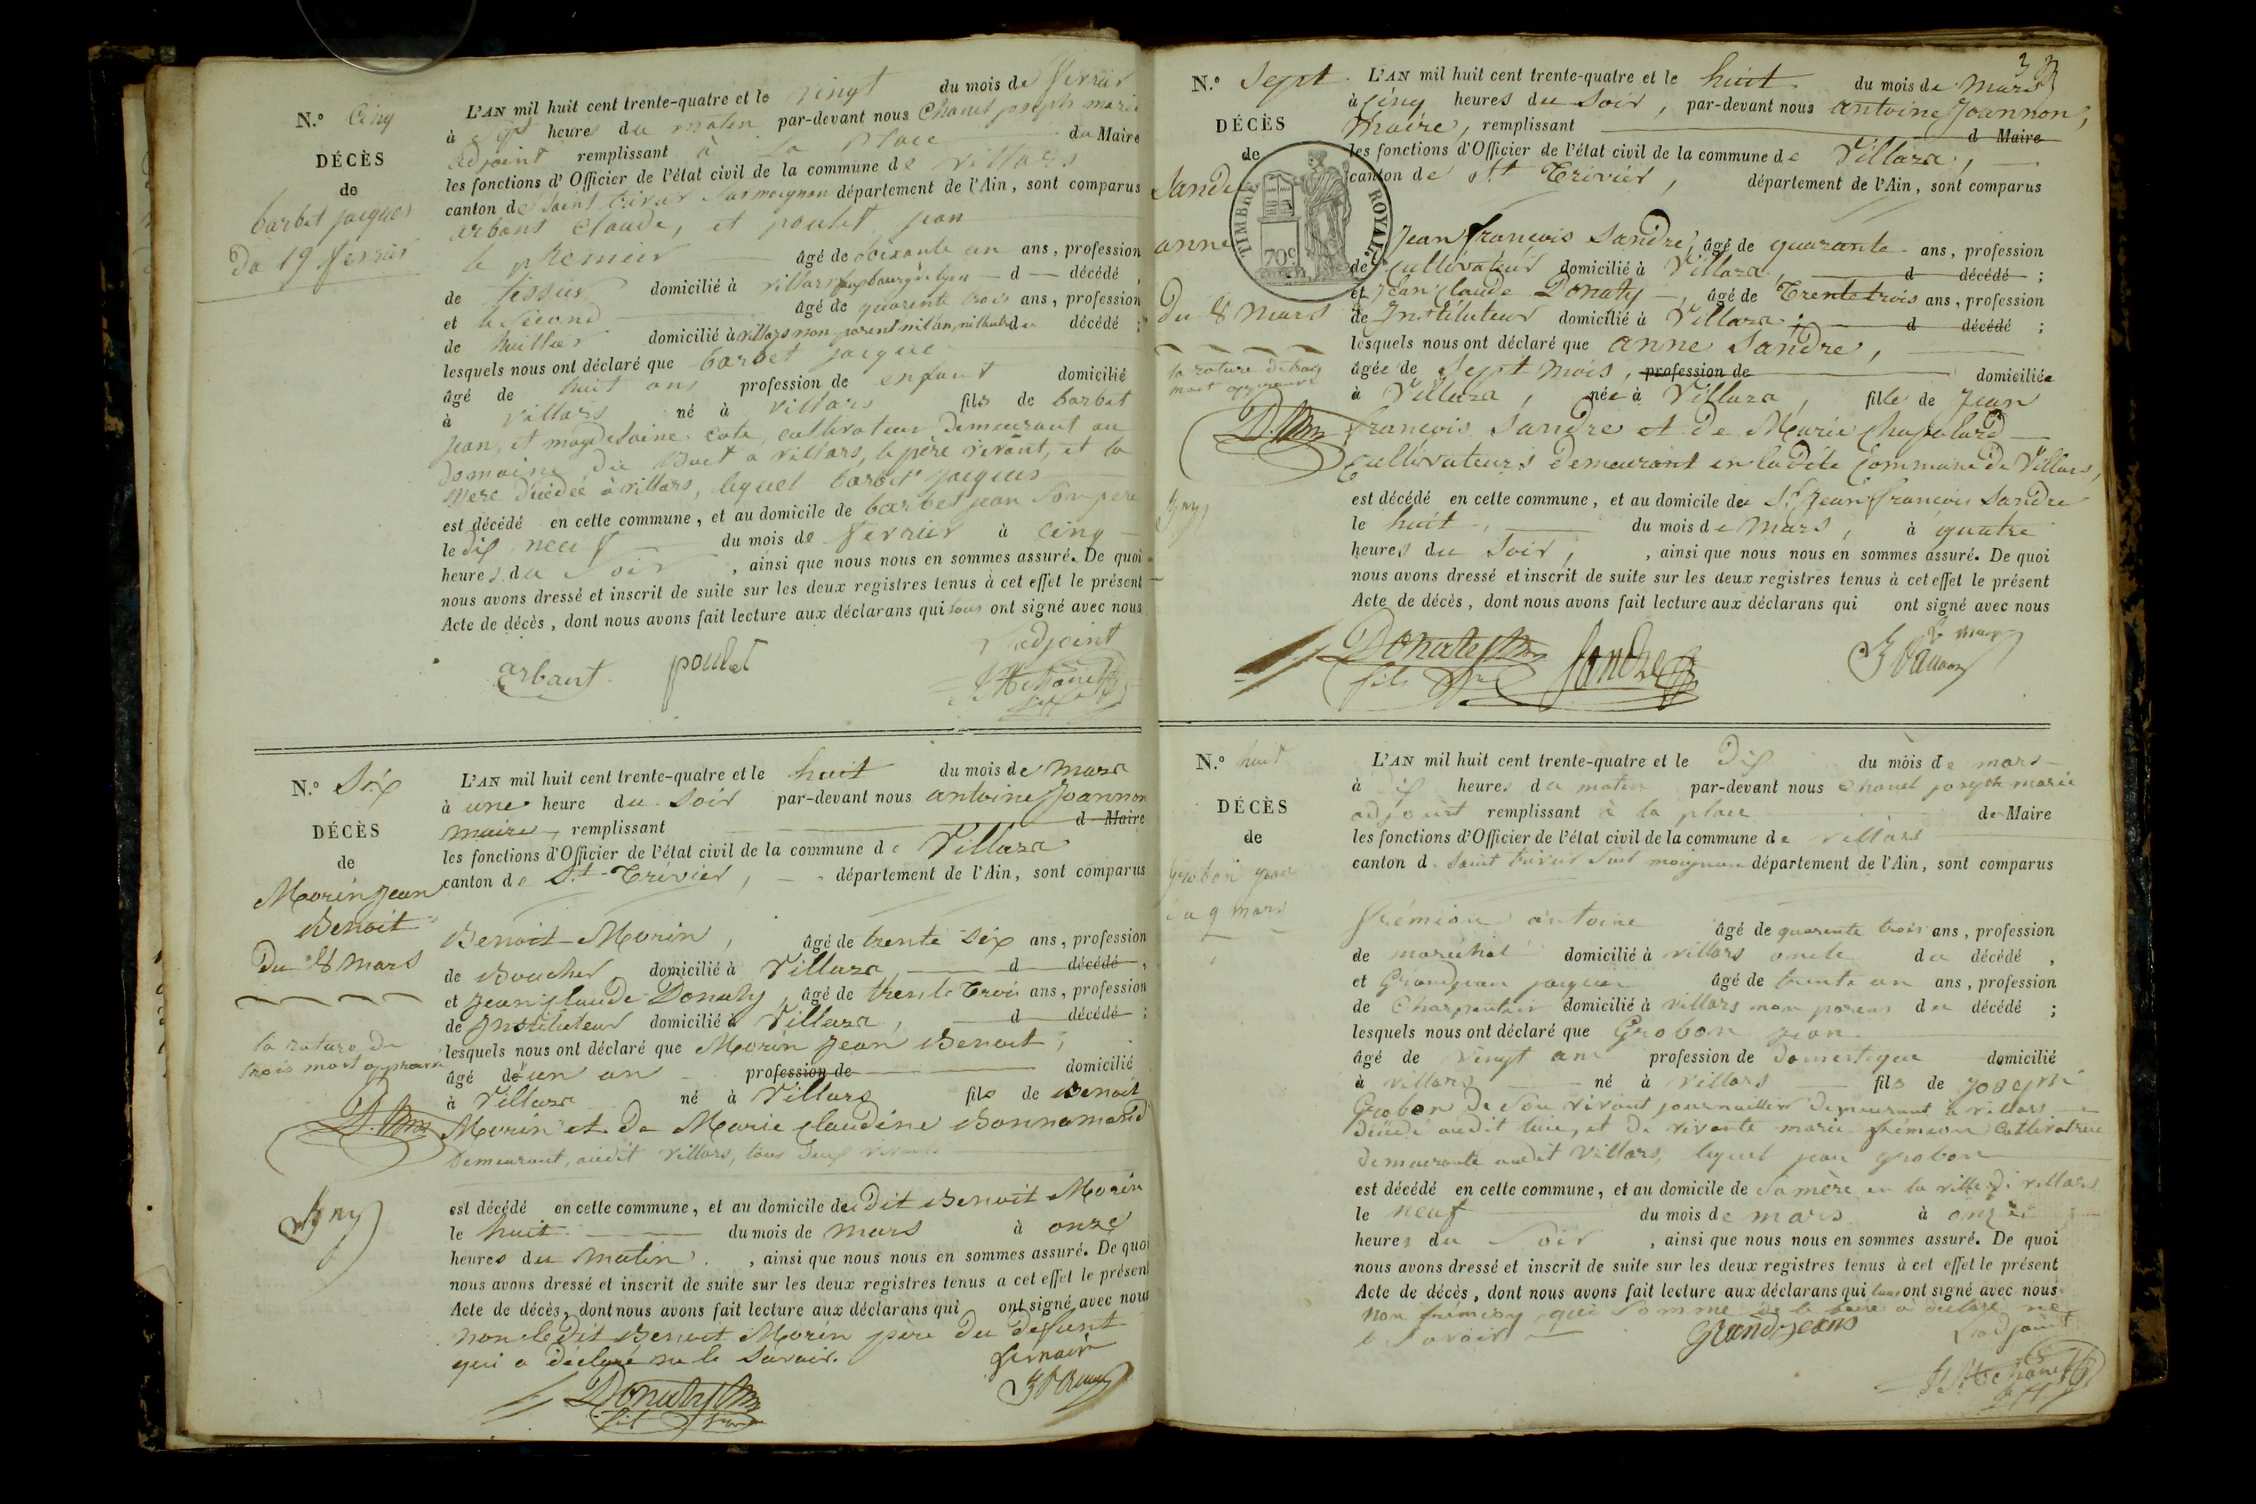 N.º Cinq
DÉCÈS
de
barbet jacques
Du 19 ferrier
L'AN mil huit cent trente-quatre et le vingt du mois de ferrier
à sept heures du matin par-devant nous Chanel joseph marie
adjoint remplissant à la place du Maire
les fonctions d'Officier de l'état civil de la commune de villars
canton de Saint trivier sur moignan département de l'Ain, sont comparus
arbant Claude, et poulet jean
le premier âgé de soixante un ans, profession
de tissier domicilié à villars d décédé,
et le second âgé de quarente trois ans, profession
de huillier domicilié à villars non parent ni l'un, ni l'autre du décédé ;
lesquels nous ont déclaré que barbet jacque
âgé de huit ans profession de enfant domicilié
à villars né à villars fils de barbet
jean, et magdelaine cote, cultivateur demeurant au
domaine du Buet a villars, le père vivant, et la
mere décédée à villars, lequel barbet jacques
est décédé en cette commune, et au domicile de barbet jean son pere
le dix neuf du mois de ferrier à cinq
heures du soir, ainsi que nous nous en sommes assuré. De quoi
nous avons dressé et inscrit de suite sur les deux registres tenus à cet effet le présent
Acte de décès, dont nous avons fait lecture aux déclarans qui tous ont signé avec nous
L'adjoint
arbant poulet
N.º Six
DÉCÈS
de
Morin Jean
Benoit
Du 8 mars
la rature de
trois mots approuvé
L'AN mil huit cent trente-quatre et le huit du mois de mars
à une heure du soir par-devant nous antoine Joannon
maire, remplissant d Maire
les fonctions d'Officier de l'état civil de la commune de Villars
canton de St Trévier, département de l'Ain, sont comparus
Benoit Morin, âgé de trente six ans, profession
de Boucher domicilié à Villars, d décédé,
et Jean Claude Donaty, âgé de trente trois ans, profession
de Instituteur domicilié à Villars, d décédé ;
lesquels nous ont déclaré que Morin Jean Benoit,
âgé de un an profession de domicilié
à Villars né à Villars fils de Benoit
Morin et de Marie Claudine Bonnamard
demeurant, audit villars, tous deux vivans
est décédé en cette commune, et au domicile du dit Benoit Morin
le huit du mois de mars à onze
heures du matin, ainsi que nous nous en sommes assuré. De quoi
nous avons dressé et inscrit de suite sur les deux registres tenus a cet effet le présent
Acte de décès, dont nous avons fait lecture aux déclarans qui ont signé avec nous
non ledit Benoit Morin père du defunt
qui a déclaré ne le savoir.
Le maire
Donaty
N.º Sept
DÉCÈS
de
Sandre
anne
Du 8 mars
TIMBRE ROYAL
70c
L'AN mil huit cent trente-quatre et le huit du mois de mars
à cinq heures du soir, par-devant nous antoine Joannon,
maire, remplissant d Maire
les fonctions d'Officier de l'état civil de la commune de Villars,
canton de St Trévier, département de l'Ain, sont comparus
Jean françois Sandre, âgé de quarante ans, profession
de Cultivateur domicilié à Villars, d décédé ;
et Jean Claude Donaty, âgé de Trente trois ans, profession
de Instituteur domicilié à Villars, d décédé ;
lesquels nous ont déclaré que anne Sandre,
âgée de Sept mois, profession de domiciliée
à Villars, née à Villars, fille de Jean
françois Sandre et de Marie Chapelard
Cultivateurs demeurant en ladite Commune de Villars,
est décédé en cette commune, et au domicile de St Jean françois Sandre
le huit, du mois de mars, à quatre
heures du soir, ainsi que nous nous en sommes assuré. De quoi
nous avons dressé et inscrit de suite sur les deux registres tenus à cet effet le présent
Acte de décès, dont nous avons fait lecture aux déclarans qui ont signé avec nous
Le maire
Donaty Sandre
N.º huit
DÉCÈS
de
Grobon jean
du 9 mars
L'AN mil huit cent trente-quatre et le Dix du mois de mars
à heures du matin par-devant nous Chanel joseph marie
adjoint remplissant à la place de Maire
les fonctions d'Officier de l'état civil de la commune de villars
canton de Saint trivier sur moignan département de l'Ain, sont comparus
frémion antoine âgé de quarente trois ans, profession
de maréchal domicilié à villars oncle du décédé,
et Grandjean jacques âgé de trente un ans, profession
de Charpentier domicilié à villars non parens du décédé ;
lesquels nous ont déclaré que Grobon jean
âgé de vingt ans profession de domestique domicilié
à villars né à villars fils de joseph
Grobon de son vivant journaillier demeurant a villars
décédé audit lieu, et de vivante marie frémion Cultivatrice
demeurante audit Villars, lequel jean grobon
est décédé en cette commune, et au domicile de sa mère en la ville de villars
le neuf du mois de mars à onze
heures du soir, ainsi que nous nous en sommes assuré. De quoi
nous avons dressé et inscrit de suite sur les deux registres tenus à cet effet le présent
Acte de décès, dont nous avons fait lecture aux déclarans qui tous ont signé avec nous
non frémion, qui sommé de le faire a déclaré ne
le savoir
Grandjeans L'adjoint